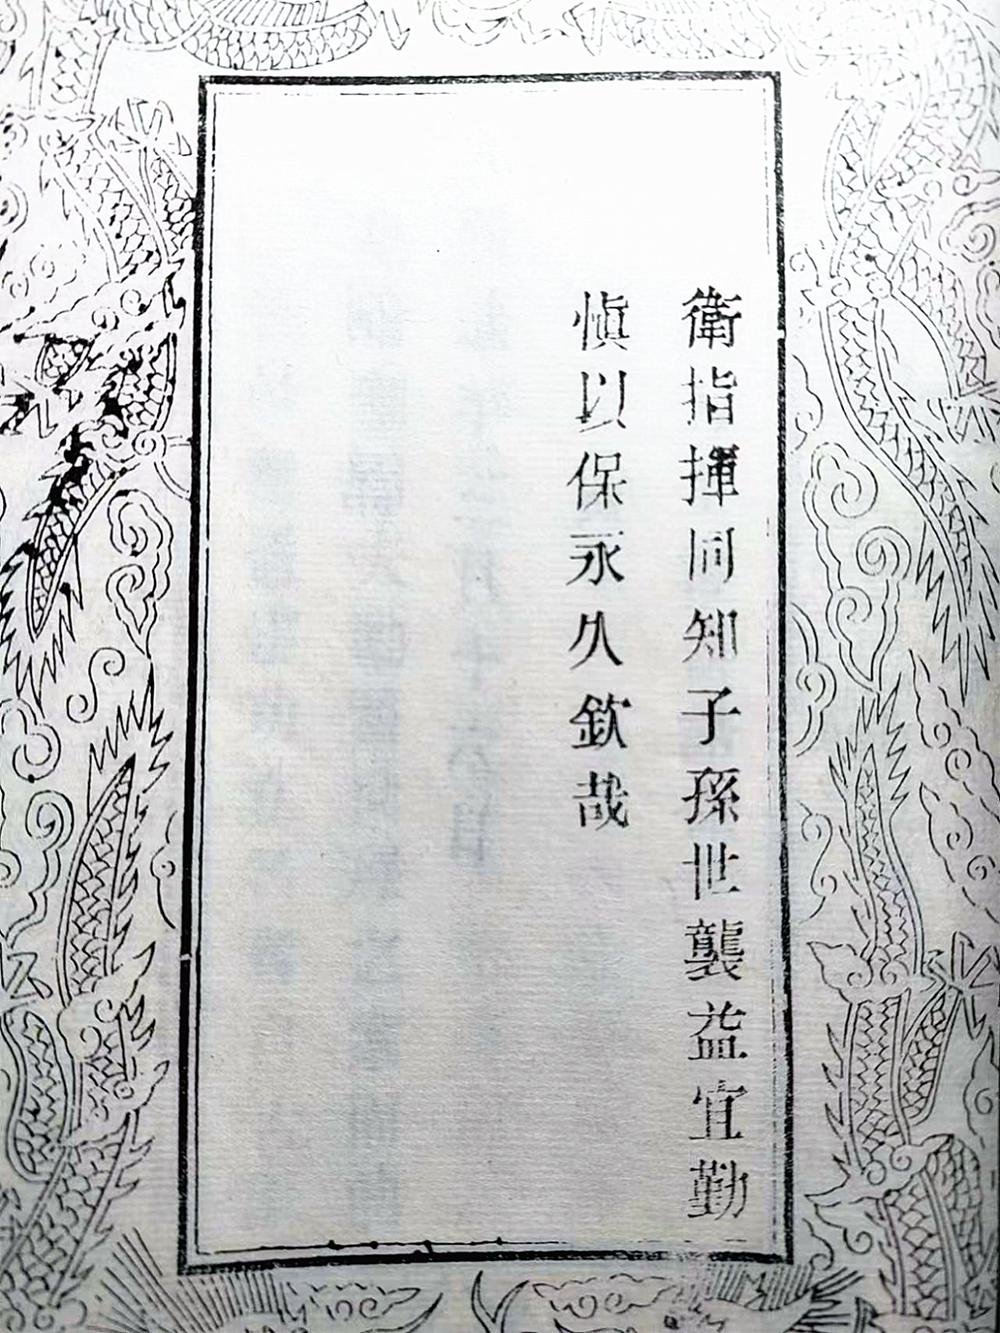 衛指揮同知子孫世襲益宜勤
愼以保永久欽哉